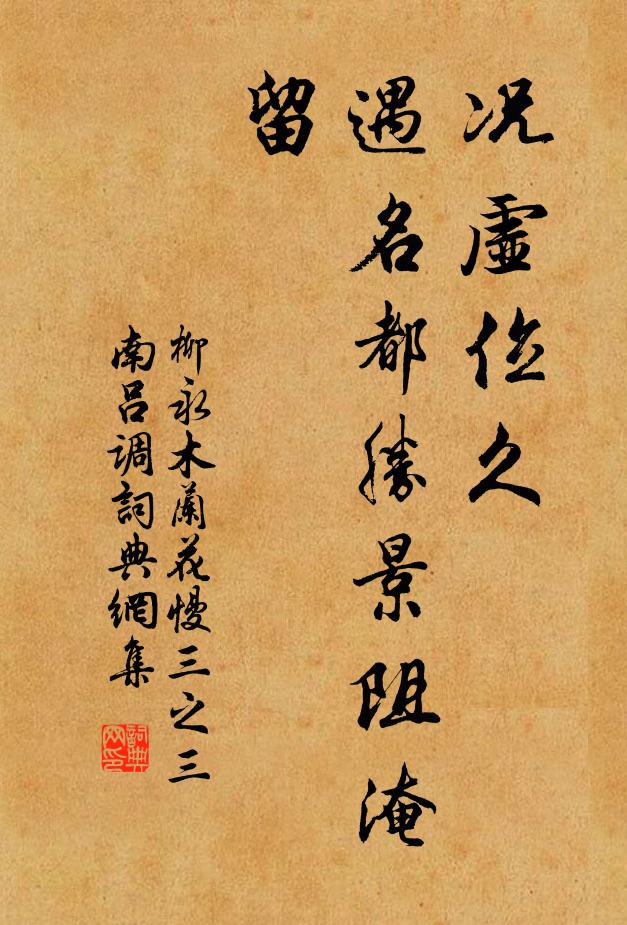 况虛位久
遇名都勝景阻淹
留
柳永木蘭花慢三之三
南吕调詞典網集
詞典
网印